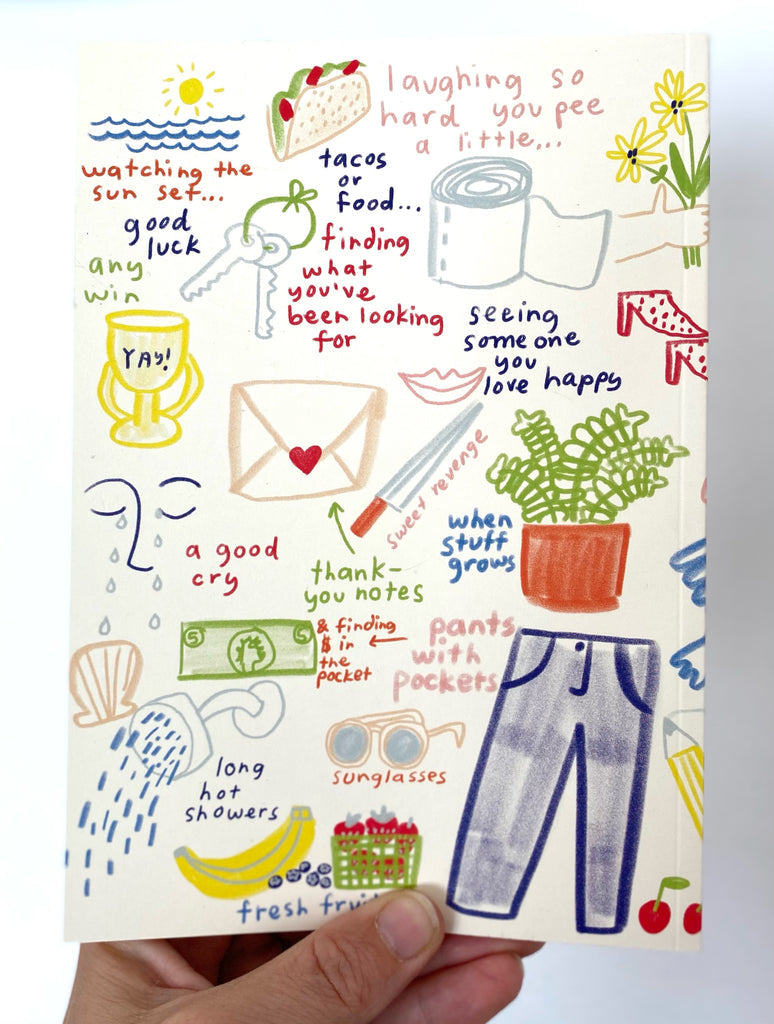 laughing so
hard you pee
a little...
watching the
sun set...
tacos
or
food...
good
luck
finding
what
you've
been looking
for
any
win
YAY!
seeing
someone
you
love happy
sweet revenge
when
stuff
grows
a good
cry
thank-
you notes
5 5
& finding
$ in
the
pocket
pants
with
pockets
long
hot
showers
sunglasses
fresh fruit